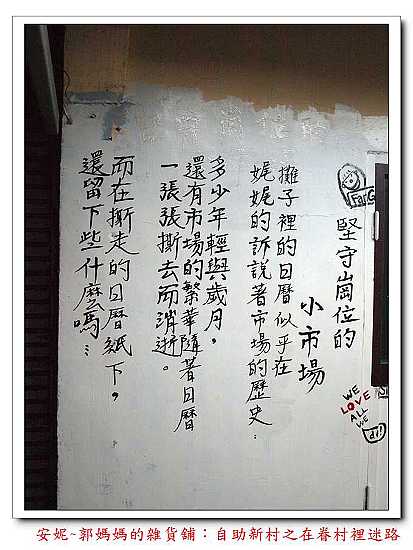 堅守崗位的
小市場
攤子裡的日曆似乎在
娓娓的訴說著市場的歷史：
多少年輕與歲月，
還有市場的繁華隨著日曆
一張張撕去而消逝。
而在撕走的日曆紙下，
還留下些什麼嗎…
WE
LOVE
ALL
WE
安妮~郭媽媽的雜貨舖：自助新村之在眷村裡迷路